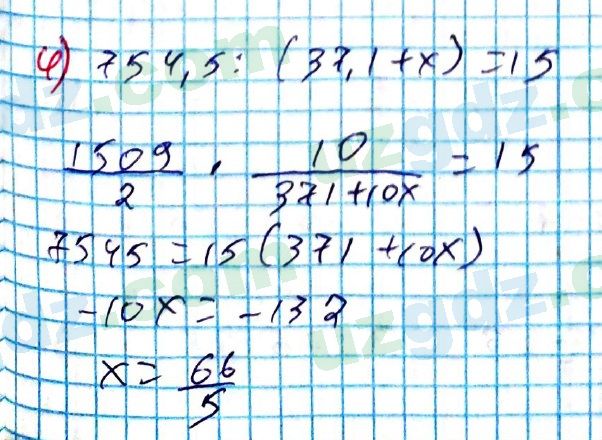 4) 754,5 : (37,1+x) = 15
1509/2 · 10/(371+10x) = 15
7545 = 15(371+10x)
-10x = -132
x = 66/5
uzgdz.com